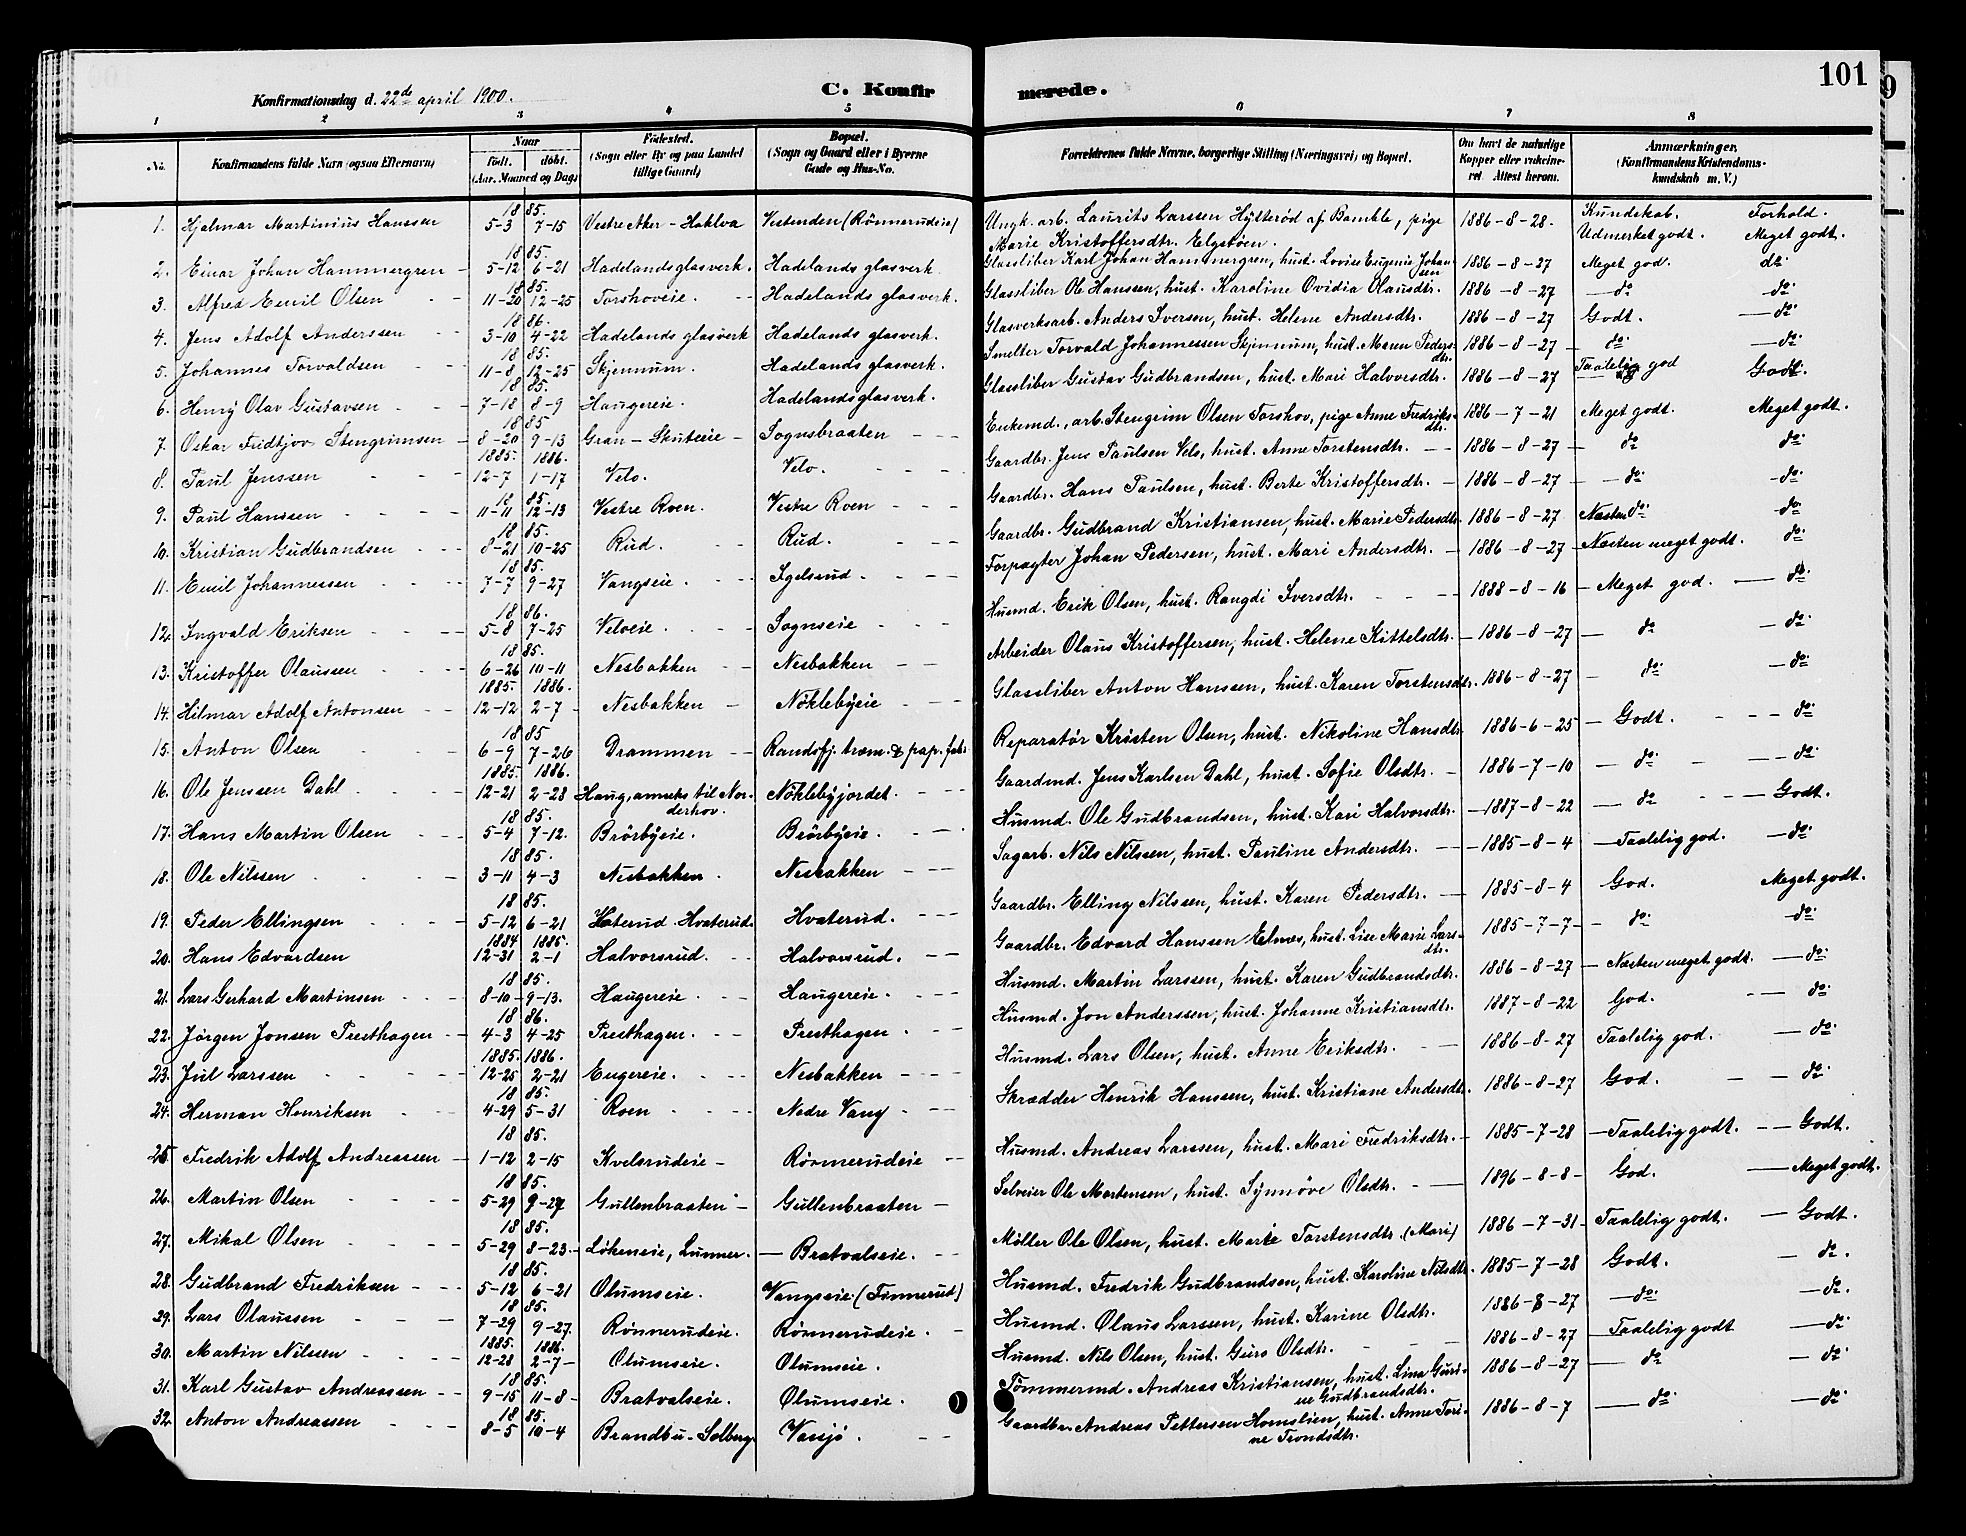 101
Konfirmationsdag d. 22de april 1900.
C. Konfirmerede.
1 2 3 4 5 6 7 8
No. Konfirmandens fulde Navn (ogsaa Efternavn)
Naar født. døbt. (Aar, Maaned og Dag)
Fødested. (Sogn eller By og paa Landet tillige Gaard)
Bopæl. (Sogn og Gaard eller i Byerne Gade og Hus-No.
Forældrenes fulde Navne, borgerlige Stilling (Næringsvei) og Bopæl.
Om havt de naturlige Kopper eller vaccineret Attest herom.
Anmærkninger, (Konfirmandens Kristendomskundskab m. V.)
Kundskab. Forhold.
1. Hjalmar Martinius Hanssen 1885. 5-3 7-15 Vestre Aker - Hakloa Vestenden (Rønnerudeie) Ungk. arb. Laurits Larssen Hysterød af Bamble, pige Marie Kristoffersdtr. Elgstøen. 1886-8-28. Udmerket godt. Meget godt.
2. Einar Johan Hammergren 1885. 5-12 6-21 Hadelands glasverk. Hadelands glasverk Glassliber Karl Johan Hammergren, hust. Lovise Eugenie Johansen 1886-8-27 Meget god. do
3. Alfred Emil Olsen 1885. 11-20 12-25 Torshoveie. Hadelands glasverk. Glassliber Ole Hanssen, hust. Karoline Ovidia Olausdtr. 1886-8-27 do do
4. Jens Adolf Anderssen 1886. 3-10 4-22 Hadelands glasverk Hadelands glasverk. Glasverksarb. Anders Iversen, hust. Helene Andersdtr. 1886-8-27 Godt. do
5. Johannes Torvaldsen 1885. 11-8 12-25 Skjennum. Hadelands glasverk. Smelter Torvald Johannessen Skjennum, hust. Maren Pedersdtr. 1886-8-27 do do
6. Henry Olav Gustavsen 1885. 7-18 8-9 Haugereie. Hadelands glasverk. Glassliber Gustav Gudbrandsen, hust. Mari Halvorsdtr. 1886-8-27 Taalelig god Godt.
7. Oskar Fridtjov Stengrimsen 1885 8-20 9-13 Gran - Skuteeie Sognsbraaten Enkemd., arb. Stengrim Olsen Torshov, pige Anne Fredriksdtr. 1886-7-21 Meget godt. Meget godt.
8. Paul Jenssen 1885. 1886. 12-7 1-17 Velo. Velo. Gaardbr. Jens Paulsen Velo, hust. Anne Torstensdtr. 1886-8-27 do do
9. Paul Hanssen 1885. 11-11 12-13 Vestre Roen. Vestre Roen Gaardbr. Hans Paulsen, hust. Berte Kristoffersdtr. 1886-8-27 do do
10. Kristian Gudbrandsen 1885. 8-21 10-25 Rud. Rud. Gaardbr. Gudbrand Kristiansen, hust. Marie Pedersdtr. 1886-8-27 Næsten do do
11. Emil Johannessen 1885. 7-7 9-27 Vangseie. Igelsrud. Forpagter Johan Pedersen, hust. Mari Andersdtr. 1886-8-27 Næsten meget godt. do
12. Ingvald Eriksen 1886. 5-8 7-25 Veloeie. Sognseie Husmd. Erik Olsen, hust. Rangdi Iversdtr. 1888-8-16 Meget god. do
13. Kristoffer Olaussen 1885. 6-26 10-11 Nesbakken Nesbakken Arbeider Olaus Kristoffersen, hust. Helene Kittelsdtr. 1886-8-27 do do
14. Hilmar Adolf Antonsen 1885. 1886. 12-12 2-7 Nesbakken Nøklebyeie Glassliber Anton Hanssen, hust. Karen Torstensdtr. 1886-8-27 do do
15. Anton Olsen 1885 6-9 7-26 Drammen Randsfj. træm. & pap. fabr. Reparatør Kristen Olsen, hust. Nikoline Hansdtr. 1886-6-25 Godt. do
16. Ole Jenssen Dahl 1885. 1886. 12-21 2-28 Haug, anneks til Norderhov. Nøklebyjordet. Gaardmd. Jens Karlsen Dahl, hust. Sofie Olsdtr. 1886-7-10 do do
17. Hans Martin Olsen 1885. 5-4 7-12. Brørbyeie. Brørbyeie. Husmd. Ole Gudbrandsen, hust. Kari Halvorsdtr. 1887-8-22 do Godt.
18. Ole Nilssen 1885. 3-11 4-3 Nesbakken. Nesbakken Sagarb. Nils Nilssen, hust. Pauline Andersdtr. 1885-8-4 Taalelig god. do
19. Peder Ellingsen 1885. 5-12 6-21 Hvaterud. Hvaterud. Gaardbr. Elling Nilssen, hust. Karen Pedersdtr. 1885-8-4 God. Meget godt.
20. Hans Edvardsen 1884 1885. 12-31 2-1 Halvorsrud. Halvorsrud. Gaardbr. Edvard Hanssen Elnes, hust. Lise Marie Larsdtr. 1885-7-7 do do
21. Lars Gerhard Martinsen 1885. 8-10 9-13. Haugereie. Haugereie. Husmd. Martin Larssen, hust. Karen Gudbrandsdtr. 1886-8-27 Næsten meget godt. do
22. Jørgen Jonsen Presthagen 1886. 4-3 4-25 Presthagen. Presthagen Husmd. Jon Anderssen, hust. Johanne Kristiansdtr. 1887-8-22 God. do
23. Jul Larssen 1885. 1886. 12-25 2-21 Engereie. Nesbakken Husmd. Lars Olsen, hust. Anne Eriksdtr. 1886-8-27 Taalelig god. do
24. Herman Henriksen 1885. 4-29 5-31 Roen Nedre Vang Skrædder Henrik Hanssen, hust. Kristiane Andersdtr. 1886-8-27 God. do
25 Fredrik Adolf Andreassen 1885. 1-12 2-15 Kvelsrudeie Rønnerudeie Husmd. Andreas Larssen, hust. Mari Fredriksdtr. 1885-7-28 Taalelig godt. Godt.
26. Martin Olsen 1885. 5-29 9-27 Gullenbraaten Gullenbraaten Selveier Ole Mortensen, hust. Synnøve Olsdtr. 1896-8-8 God. Meget godt.
27. Mikal Olsen 1885. 5-29 8-23 Løkeneie, Lunner. Bratvalseie. Møller Ole Olsen, hust. Marte Torstensdtr. (Mari) 1886-7-31 Taalelig godt. Godt.
28. Gudbrand Fredriksen 1885. 5-12 6-21 Olumseie. Vangseie (Finnerud) Husmd. Fredrik Gudbrandsen, hust. Karoline Nilsdtr. 1885-7-28 Godt. do.
29. Lars Olaussen 1885. 7-29 9-27. Rønnerudeie. Rønnerudeie. Husmd. Olaus Larssen, hust. Karine Olsdtr. 1886-8-27 do do.
30. Martin Nilssen 1885. 1886. 12-28 2-7 Olumseie. Olumseie. Husmd. Nils Olsen, hust. Guro Olsdtr. 1886-8-27 Taalelig godt do
31. Karl Gustav Andreassen 1885. 9-15 11-8 Bratvalseie. Olumseie. Tømmermd. Andreas Kristiansen, hust. Lina Gurine Gudbrandsdtr. 1886-8-27 do do
32. Anton Andreassen 1885. 8-5 10-4 Brandbu - Solberg Vassjø. Gaardbr. Andreas Pettersen Homslien, hust. Anne Torine Trondsdtr. 1886-8-7 do do